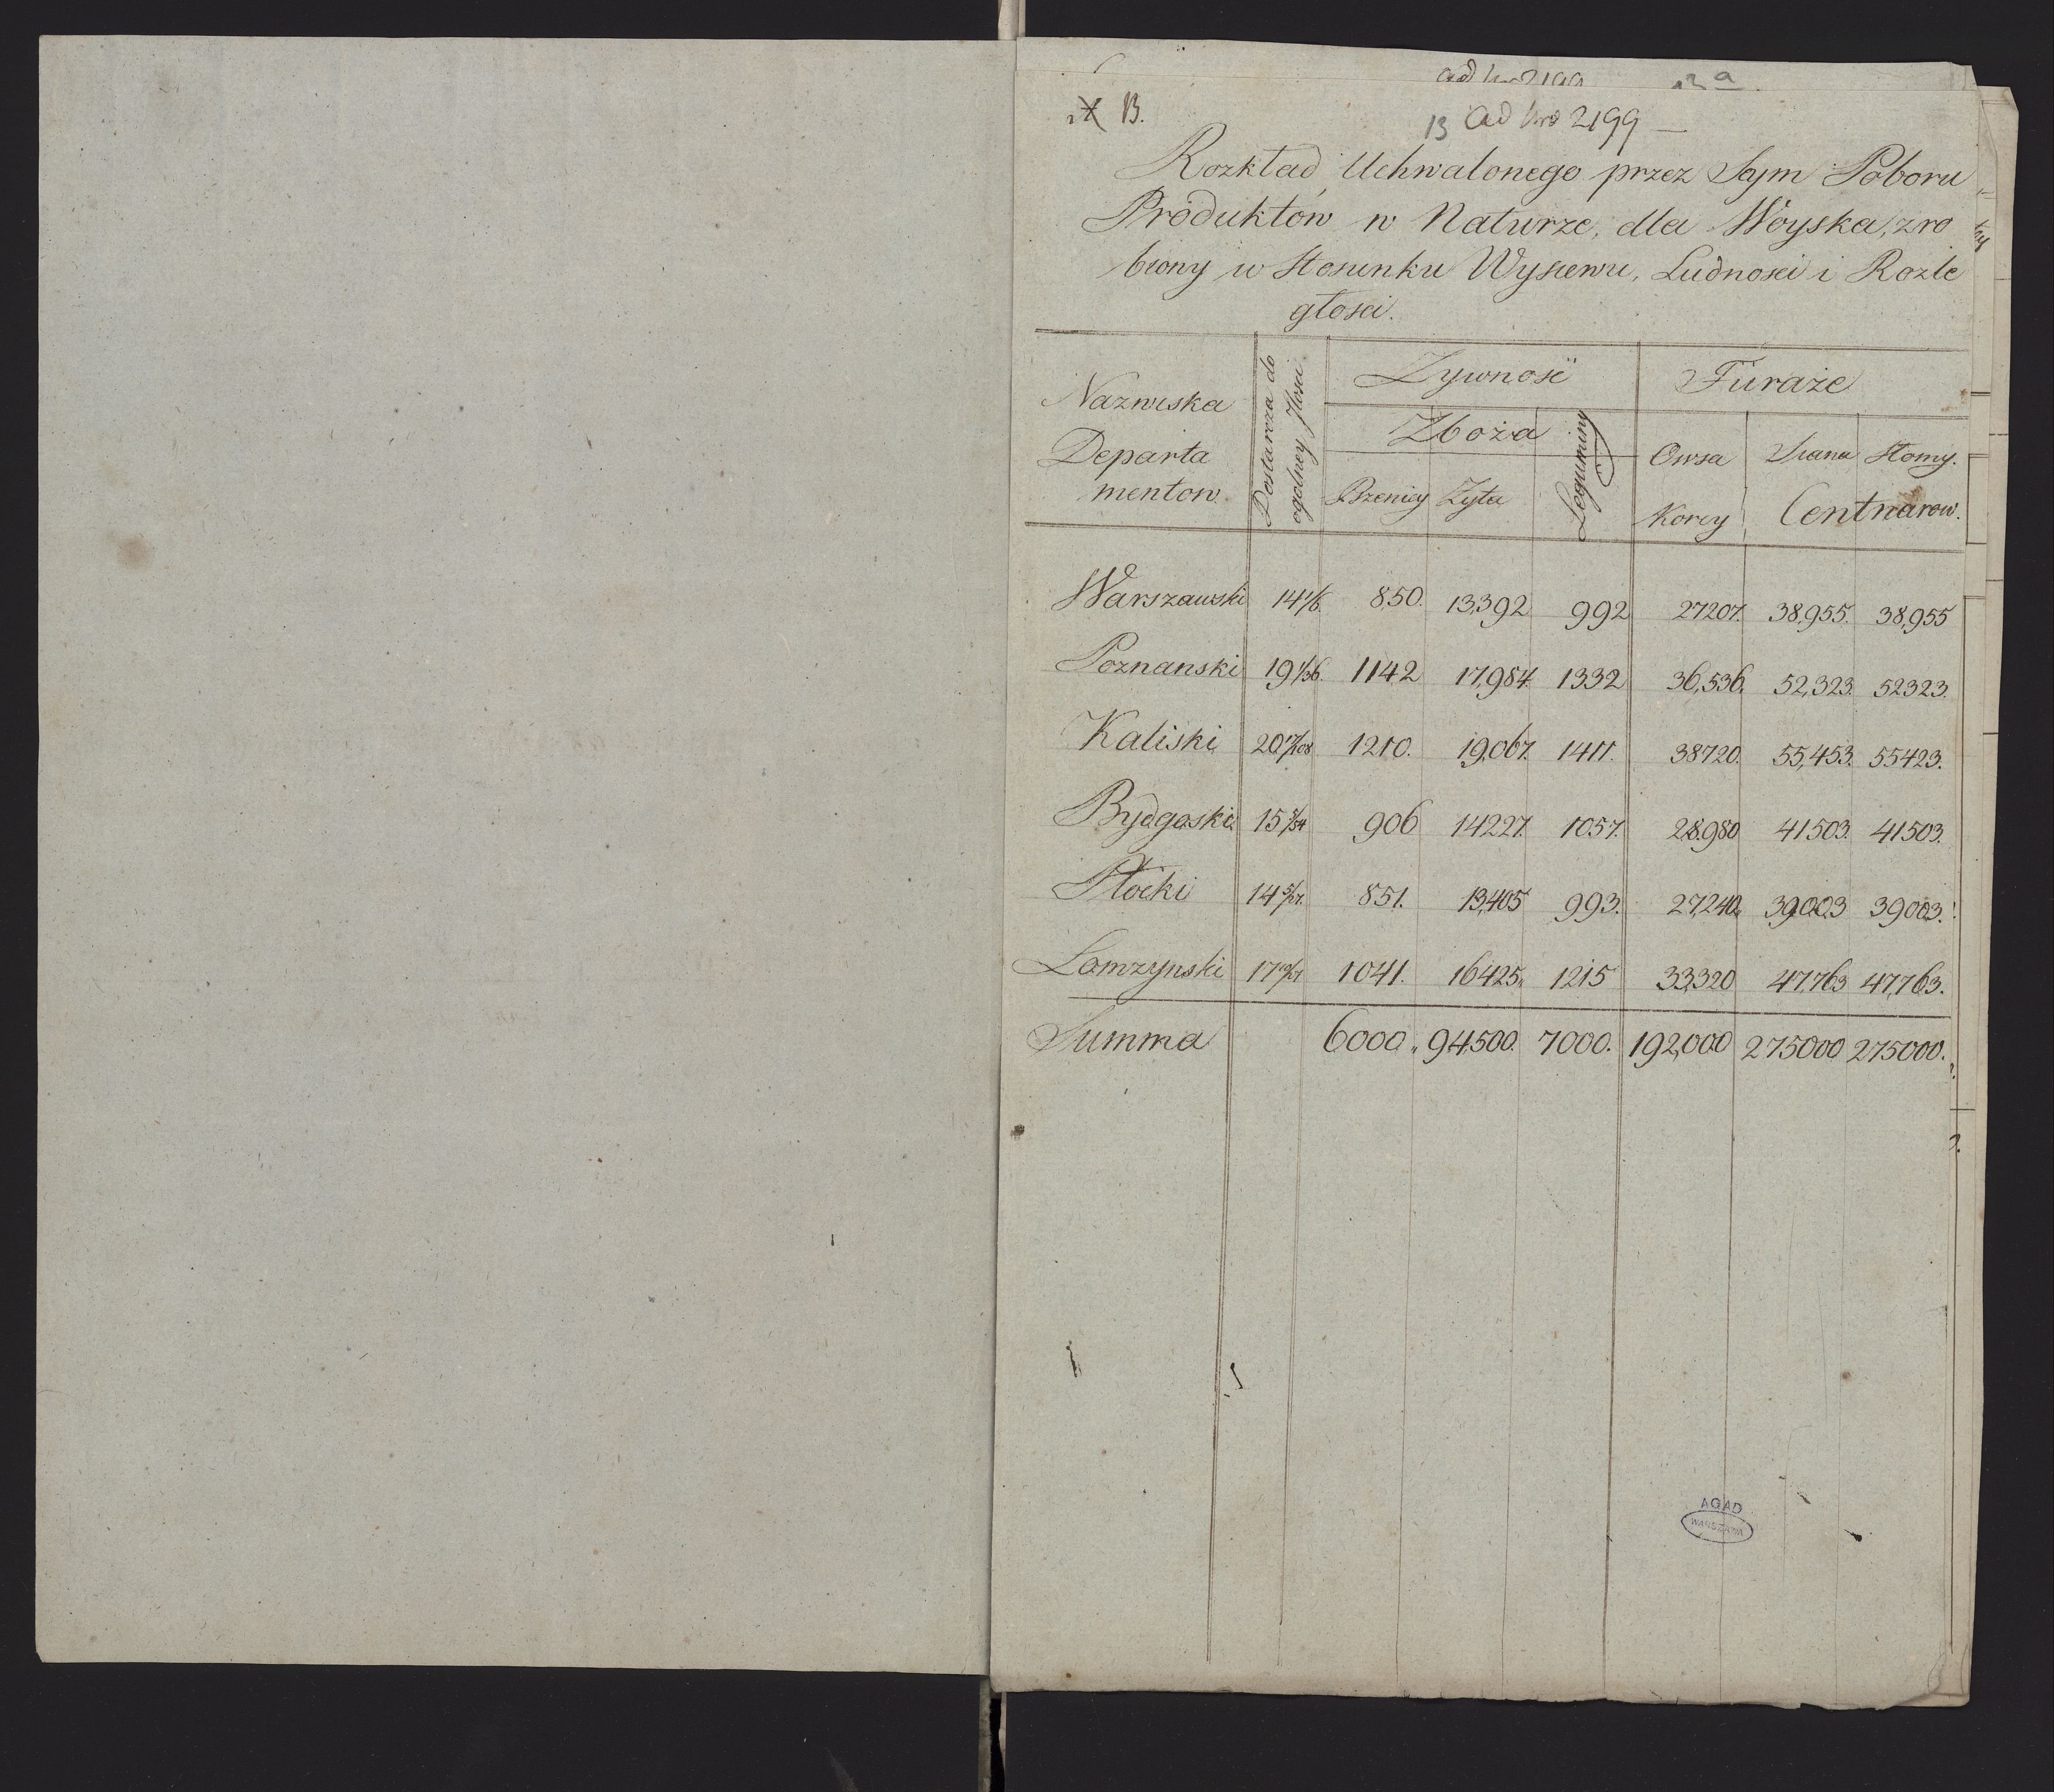 ad Nro 2199 13 a
B.
13 ad Nro 2199 —
Rozkład Uchwalonego przez Saym Poboru
Produktow w Naturze, dla Woyska, zro
biony w Stosunku Wysiewu, Ludnosci i Rozle
głosci.
Nazwiska Departa mentow
Dostarcza do ogolney Ilosci
Zywnosć
Furaże
Zboża
Leguminy
Owsa Siana Słomy.
Pszenicy Zyta
Korcy Centnarow.
Warszawski 14 1/6. 850. 13,392 992 27207. 38,955. 38,955
Poznanski 19 1/36. 1142 17,984. 1332 36,536. 52,323. 52323.
Kaliski 20 17/108 1210. 19,067. 1411. 38720. 55,453. 55423.
Bydgoski 15 906 14227. 1057. 28.980 41503. 41503.
Płocki 14 5/27. 851. 13,405 993. 27,240. 39003 39003.
Lomzynski 17 1041. 16425. 1215 33,320 47,763 47,763.
Summa 6000. 94,500. 7000. 192,000 275000 275000.
AGAD
WARSZAWA